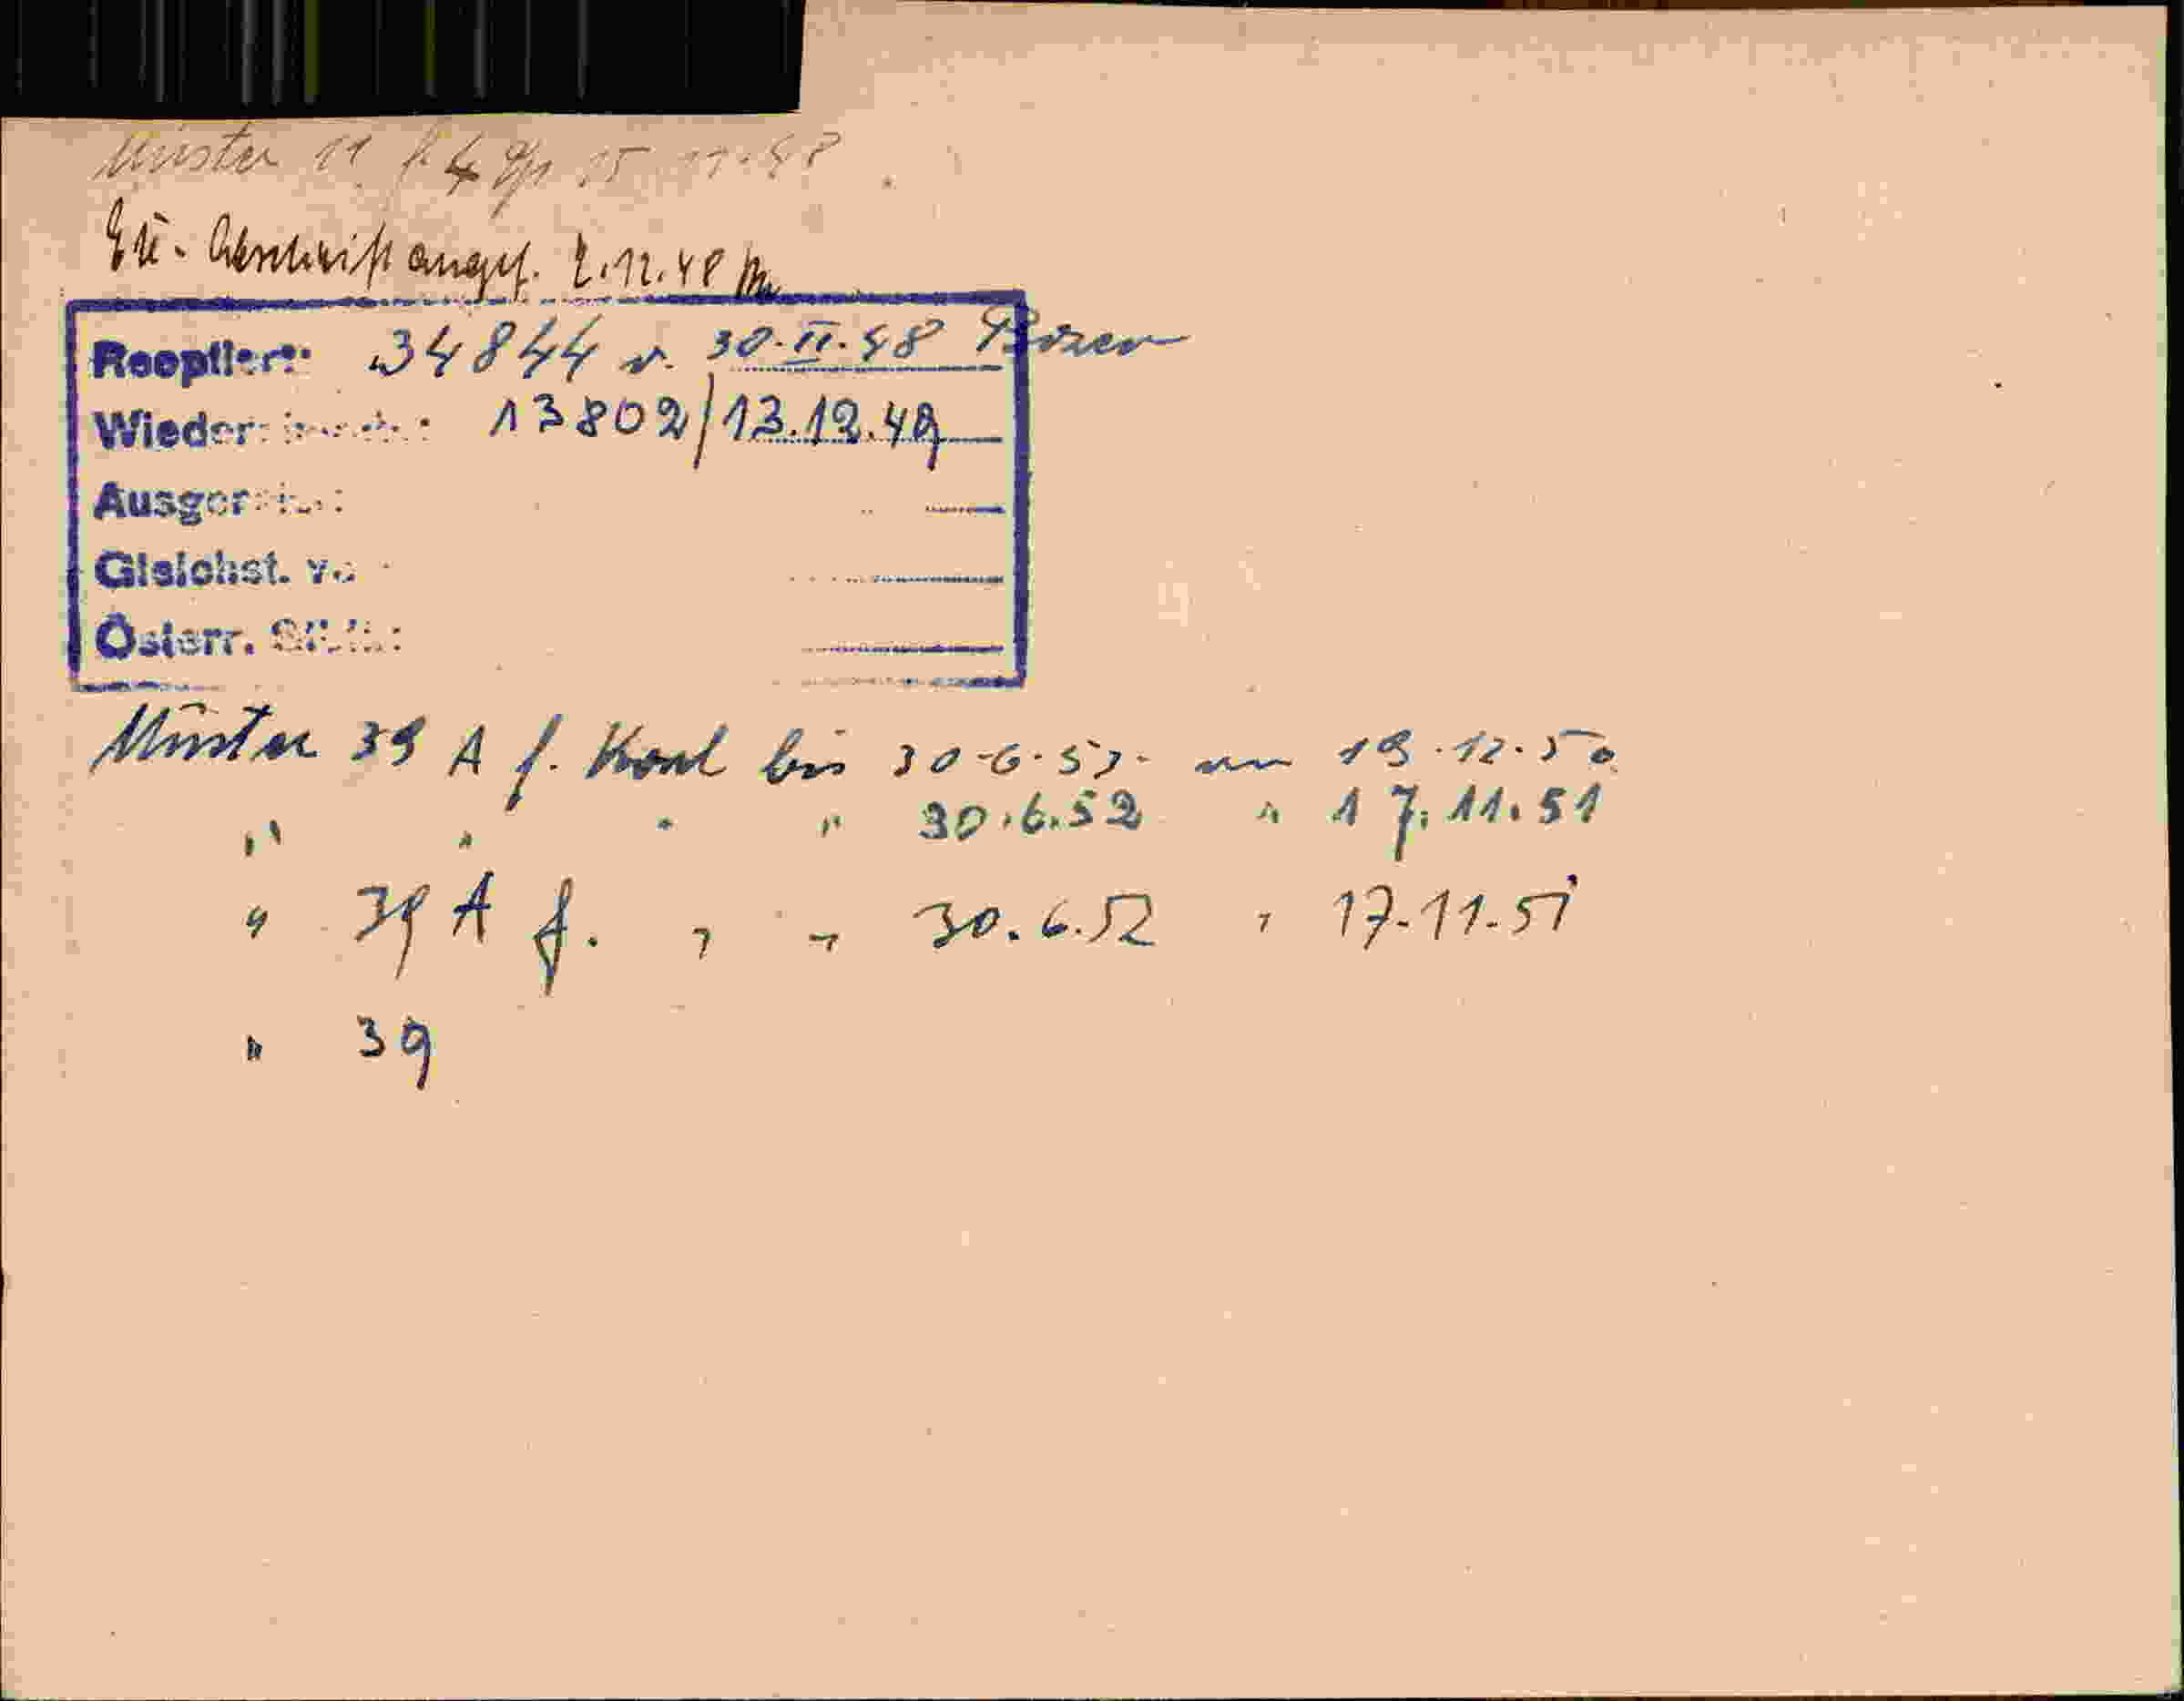 Muster 11 f. 15.11.48
Abschrift angef. 2.12.48
Reoptiert: 34844 v. 30.II.48 Bozen
Wieder 13802/13.12.49
Ausger
Gleichst. v
Österr.
Muster 39 A f. Konl bis 30.6.52. am 19.12.50
" " " " 30.6.52 " 17.11.51
" 39 A f. " " 30.6.52 " 17.11.51
" 39